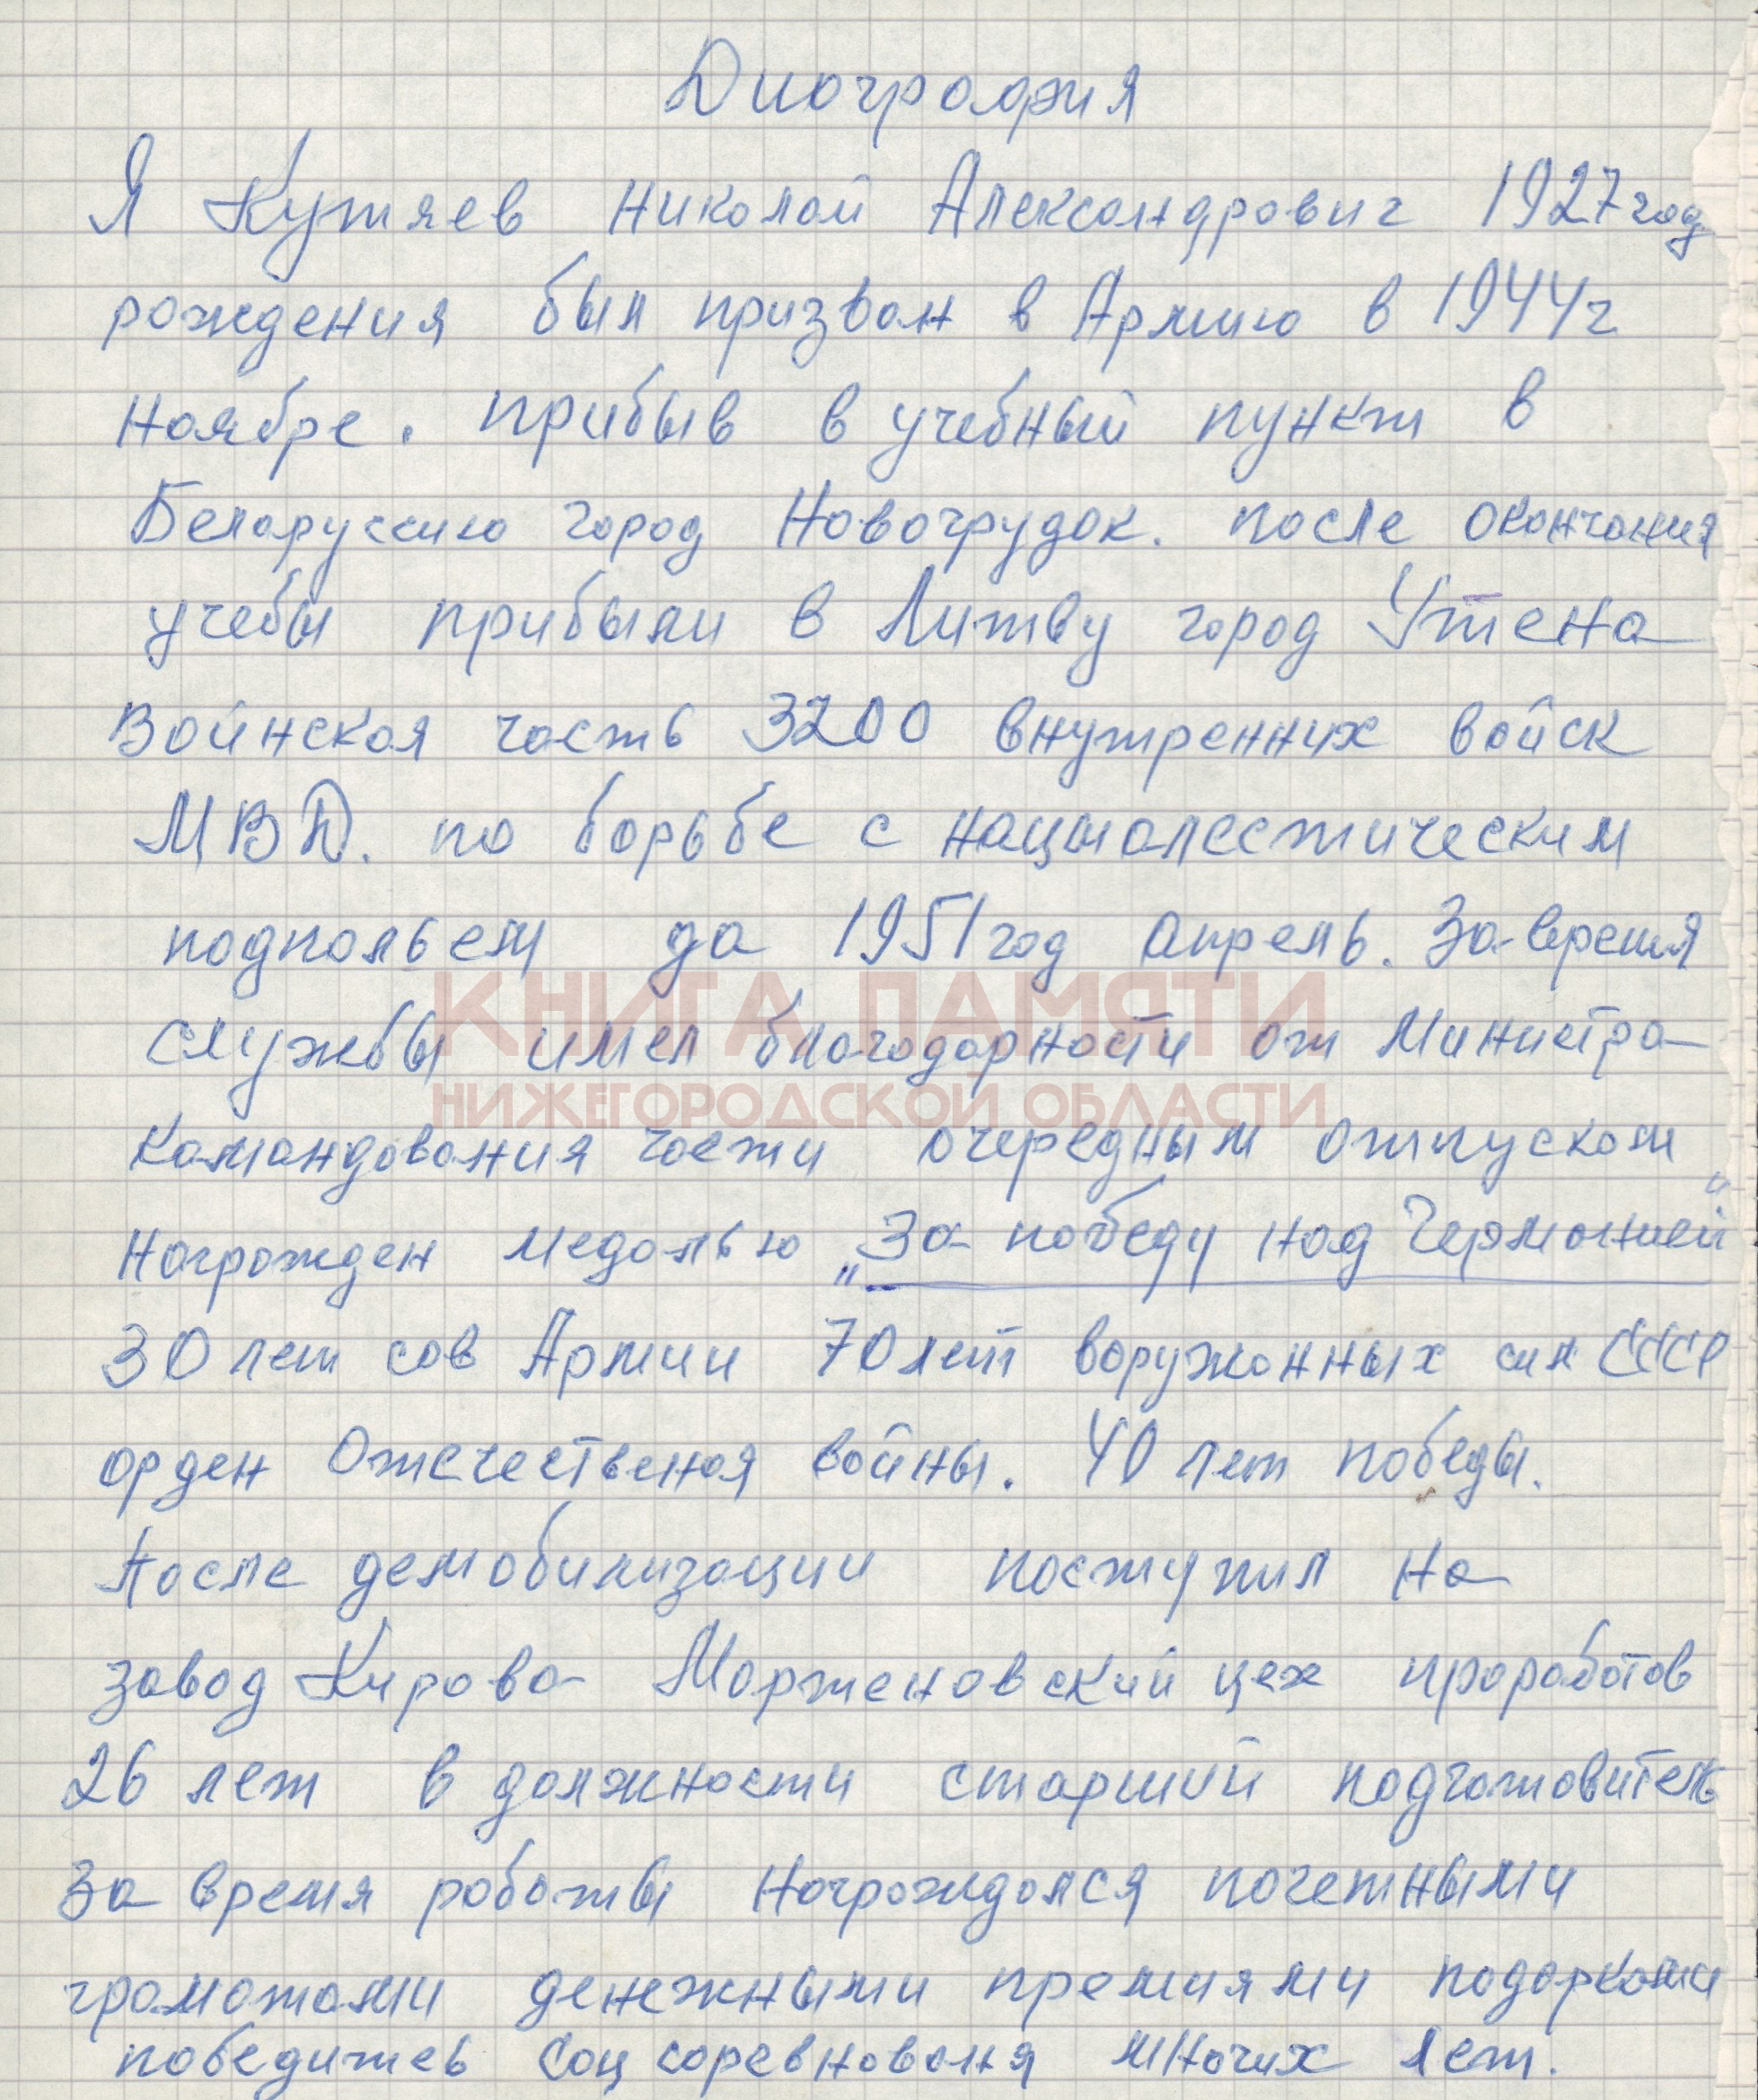 Диография
Я Кутяев николай Александрович 1927год
рождения был призван в Армию в 1944г
ноябре. прибыв в учебный пункт в
Белоруссию город Новогрудок. после окончания
учебы прибыли в Литву город Утена
Войнская часть 3200 внутренних войск
МВД. по борьбе с нацыалестическим
подпольем да 1951год апрель. За время
службы имел благодарности от Министра
Командования части очередным отпуском
Награжден медалью „За победу над Германией"
30 лет сов Армии 70 лет воружонных сил СССР
орден Отечественая войны. 40 лет победы.
После демобилизации поступил на
завод Кирова Мартеновский цех проработав
26 лет в должности старший подготовитель
За время работы Награждался почетными
грамотами денежными премиями подарками
победитеь Соц соревнованя многих лет.
КНИГА ПАМЯТИ
НИЖЕГОРОДСКОЙ ОБЛАСТИ